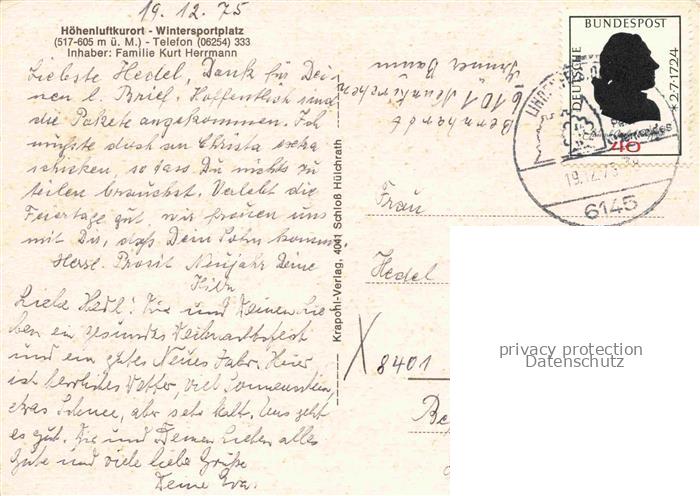 19.12.75
Höhenluftkurort - Wintersportplatz
(517-605 m ü. M.) - Telefon (06254) 333
Inhaber: Familie Kurt Herrmann
Liebste Hedel, Dank für Dei-
nen l. Brief. Hoffentlich sind
die Pakete angekommen. Ich
mußte doch an Christa extra
schicken, so dass Du nichts zu
teilen brauchst. Verlebt die
Feiertage gut, wir freuen uns
mit Dir, daß Dein Sohn kommt.
Herzl. Prosit Neujahr Deine
Liebe Hedl! Dir und Deinen Lie-
ben ein gesundes Weihnachtsfest
und ein gutes Neues Jahr. Hier
ist herrliches Wetter, viel Sonnenschein,
etwas Schnee, aber sehr kalt. Uns geht
es gut. Dir und Deinen Lieben alles
Gute und viele liebe Grüße
Deine Eva.
Krapohl-Verlag, 4041 Schloß Hülchrath
Bernhardt
6101 Neunkirchen
DEUTSCHE
BUNDESPOST
* 22.7.1724
40
19.12.75
6145
Frau
Hedel
X 8401
privacy protection
Datenschutz